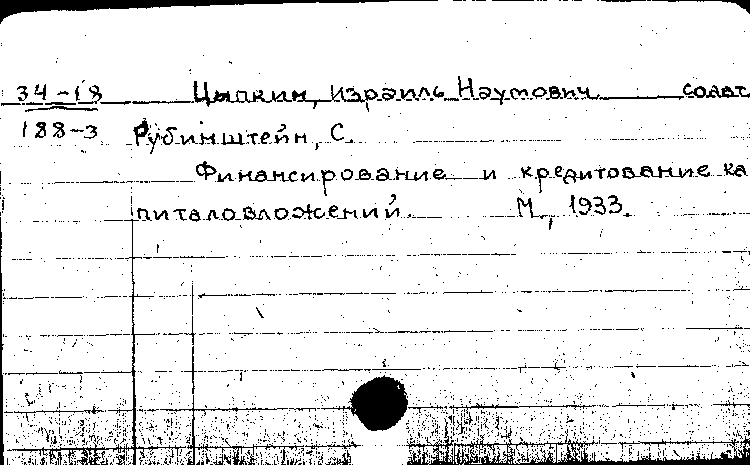 34-18 Цыпкин, Израиль Наумович соавт.
188-3 Рубинштейн, С.
Финансирование и кредитование ка
питаловложений. М., 1933.